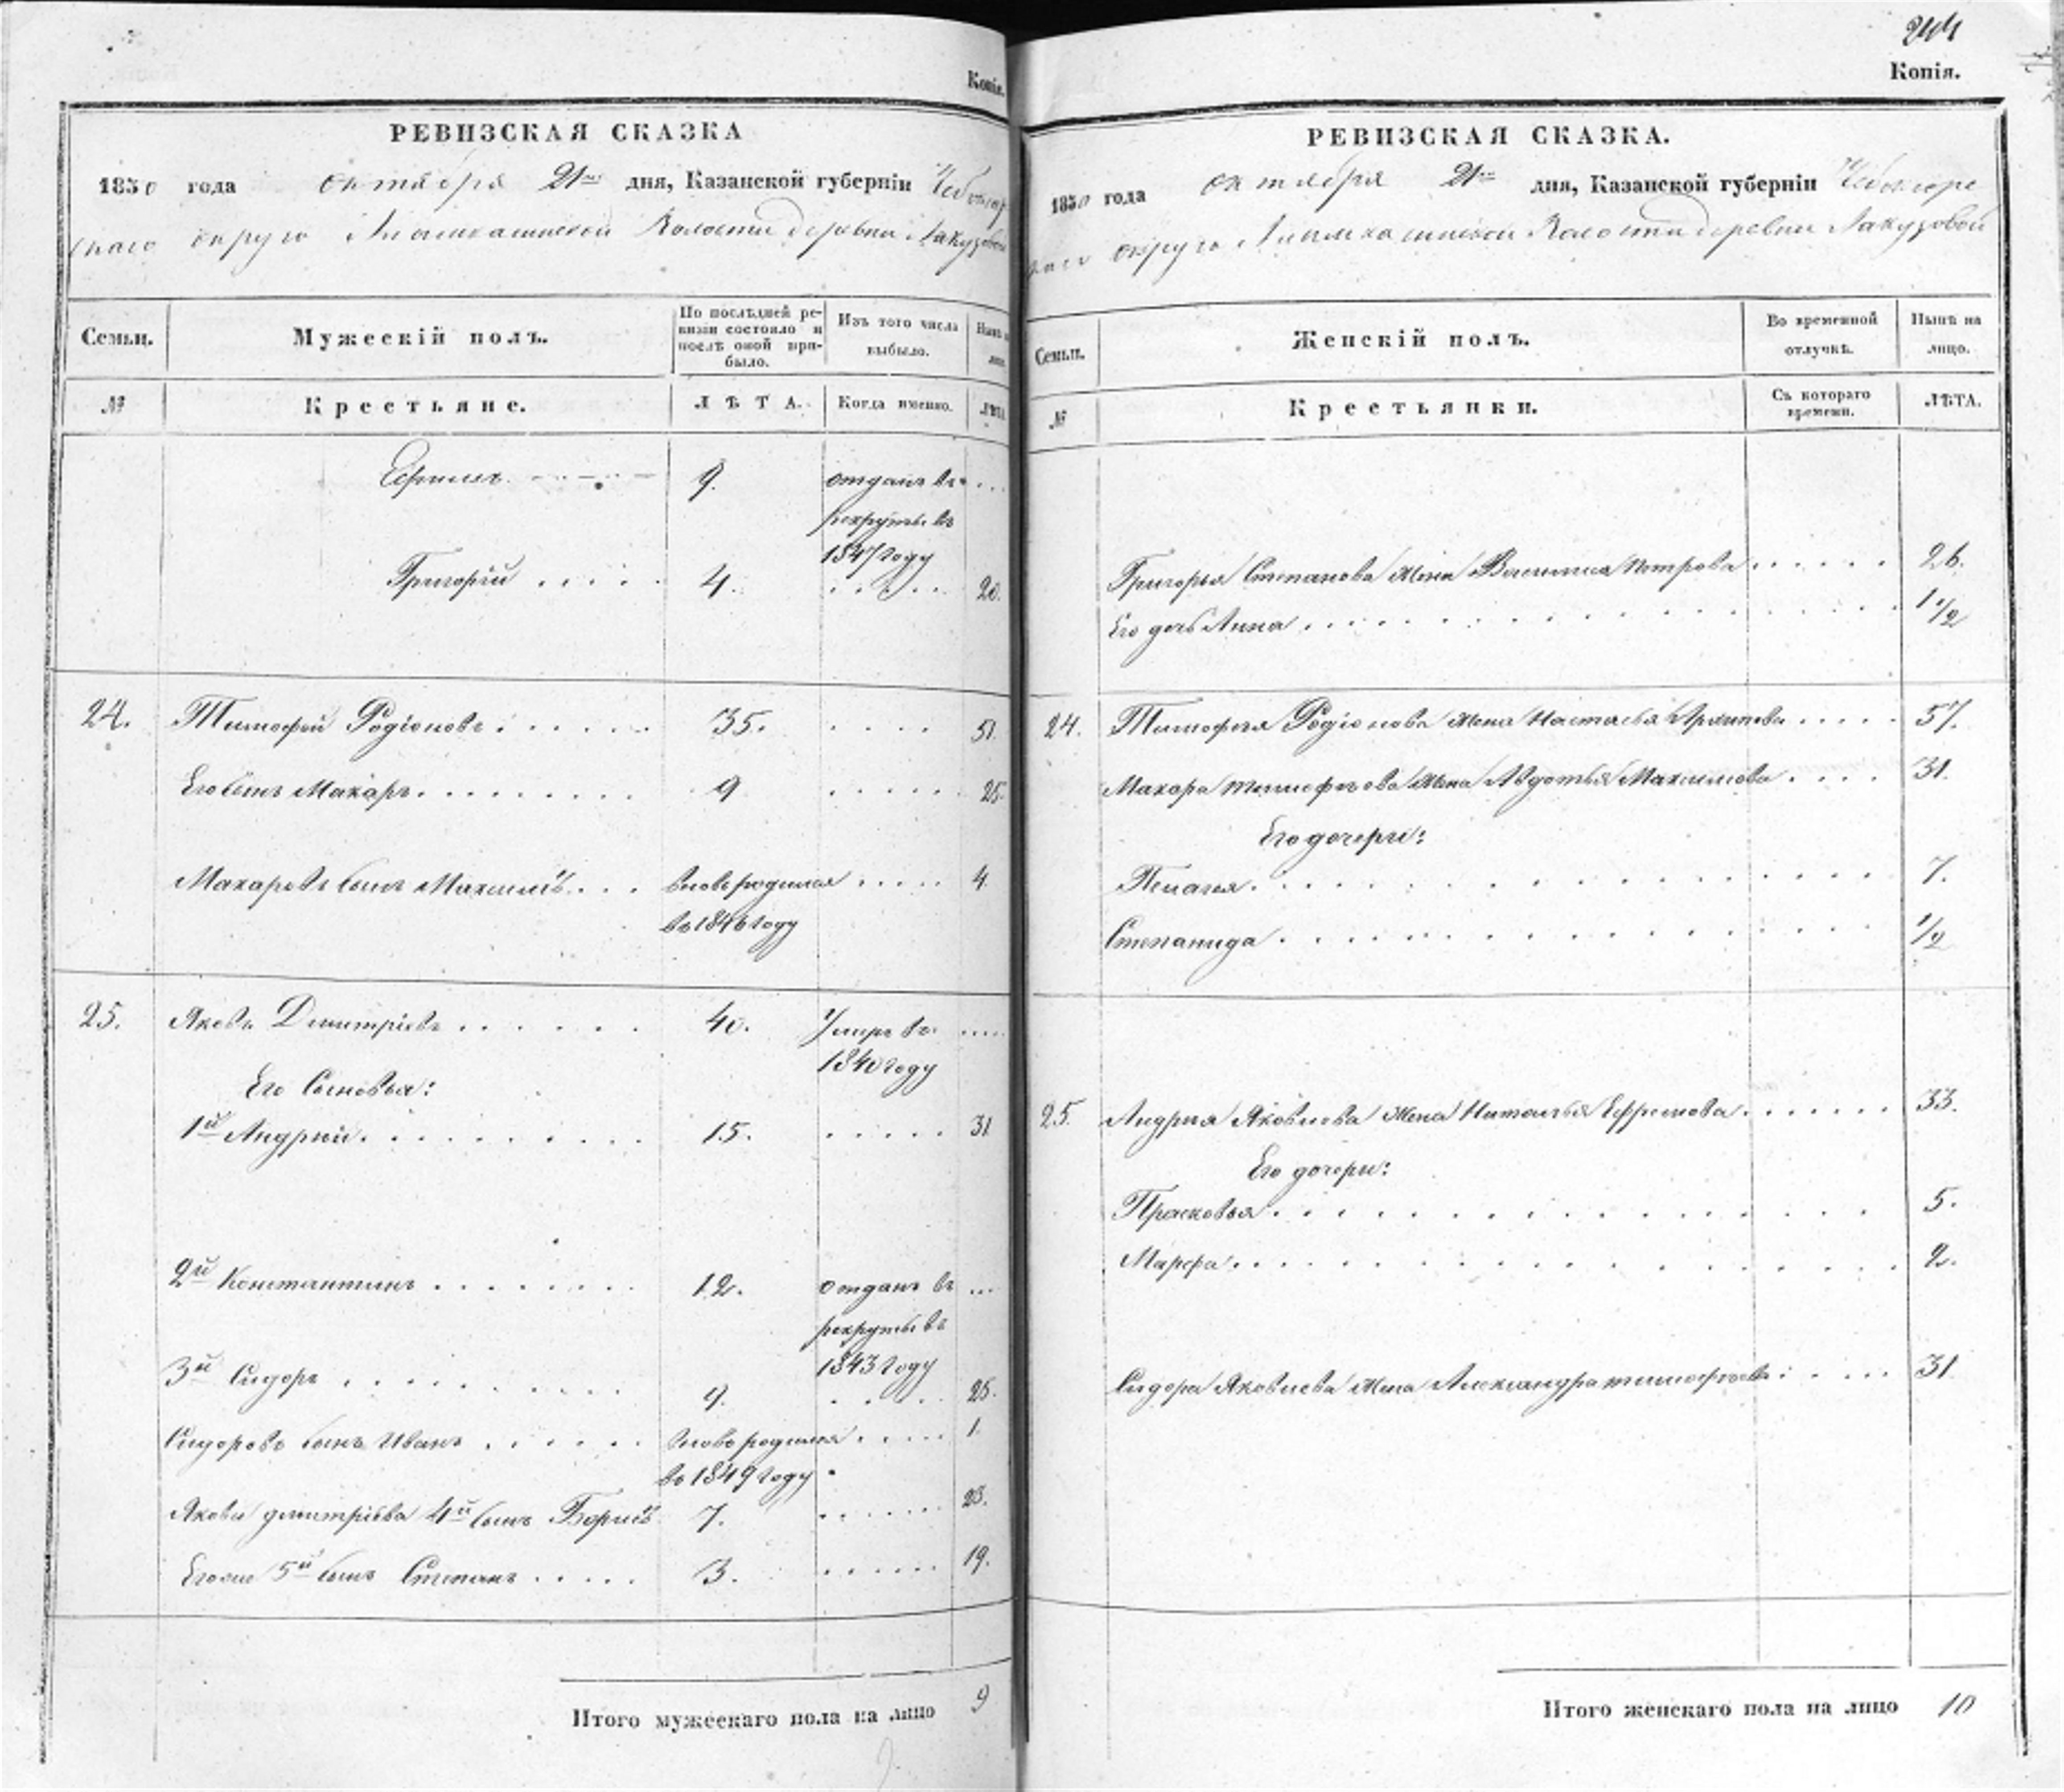 Копія.
РЕВИЗСКАЯ СКАЗКА
1850 года октября 21го дня, Казанской губерніи Чебоксар
скаго округа волости деревни Лакузовой
Семьи. Мужескій полъ. По послѣдней ревизіи состояло и послѣ оной прибыло. Изъ того числа выбыло. Нынѣ на лицо.
№ Крестьяне. ЛѢТА. Когда именно. ЛѢТА.
9. отданъ въ
рекруты въ
1847 году
Григорій 4. 20.
24. Тимофей Родіоновъ 35. 51.
Его сынъ Макаръ 9 25.
Макаровъ сынъ Максимъ вновь родился 4
въ 1846 году
25. Яковъ Димитріевъ 40. Умеръ въ
1840 году
Его Сыновья:
1й Андрей 15. 31
2й Константинъ 12. отданъ въ
рекруты въ
1843 году
3й Сидоръ 9. 25.
Сидоровъ сынъ Иванъ вновь родился 1.
въ 1849 году
Якова Димитріева 4й сынъ Борисъ 7. 23.
Его же 5й сынъ Степанъ 3. 19.
Итого мужескаго пола на лицо 9
244
Копія.
РЕВИЗСКАЯ СКАЗКА.
1850 года октября 21го дня, Казанской губерніи Чебоксар
скаго округа волости деревни Лакузовой
Семьи. Женскій полъ. Во временной отлучкѣ. Нынѣ на лицо.
№ Крестьянки. Съ котораго времени. ЛѢТА.
Григорья Степанова жена Василиса Петрова 26.
Его дочь Анна 1 1/2
24. Тимофея Родіонова жена Настасья 57.
Макара Тимофѣева жена Авдотья Максимова 31.
Его дочери:
Пелагея 7.
Степанида 1/2
25. Андрея Яковлева жена Наталья Ефремова 33.
Его дочери:
Прасковья 5.
Марфа 2.
Сидора Яковлева жена Александра Тимофѣева 31
Итого женскаго пола на лицо 10